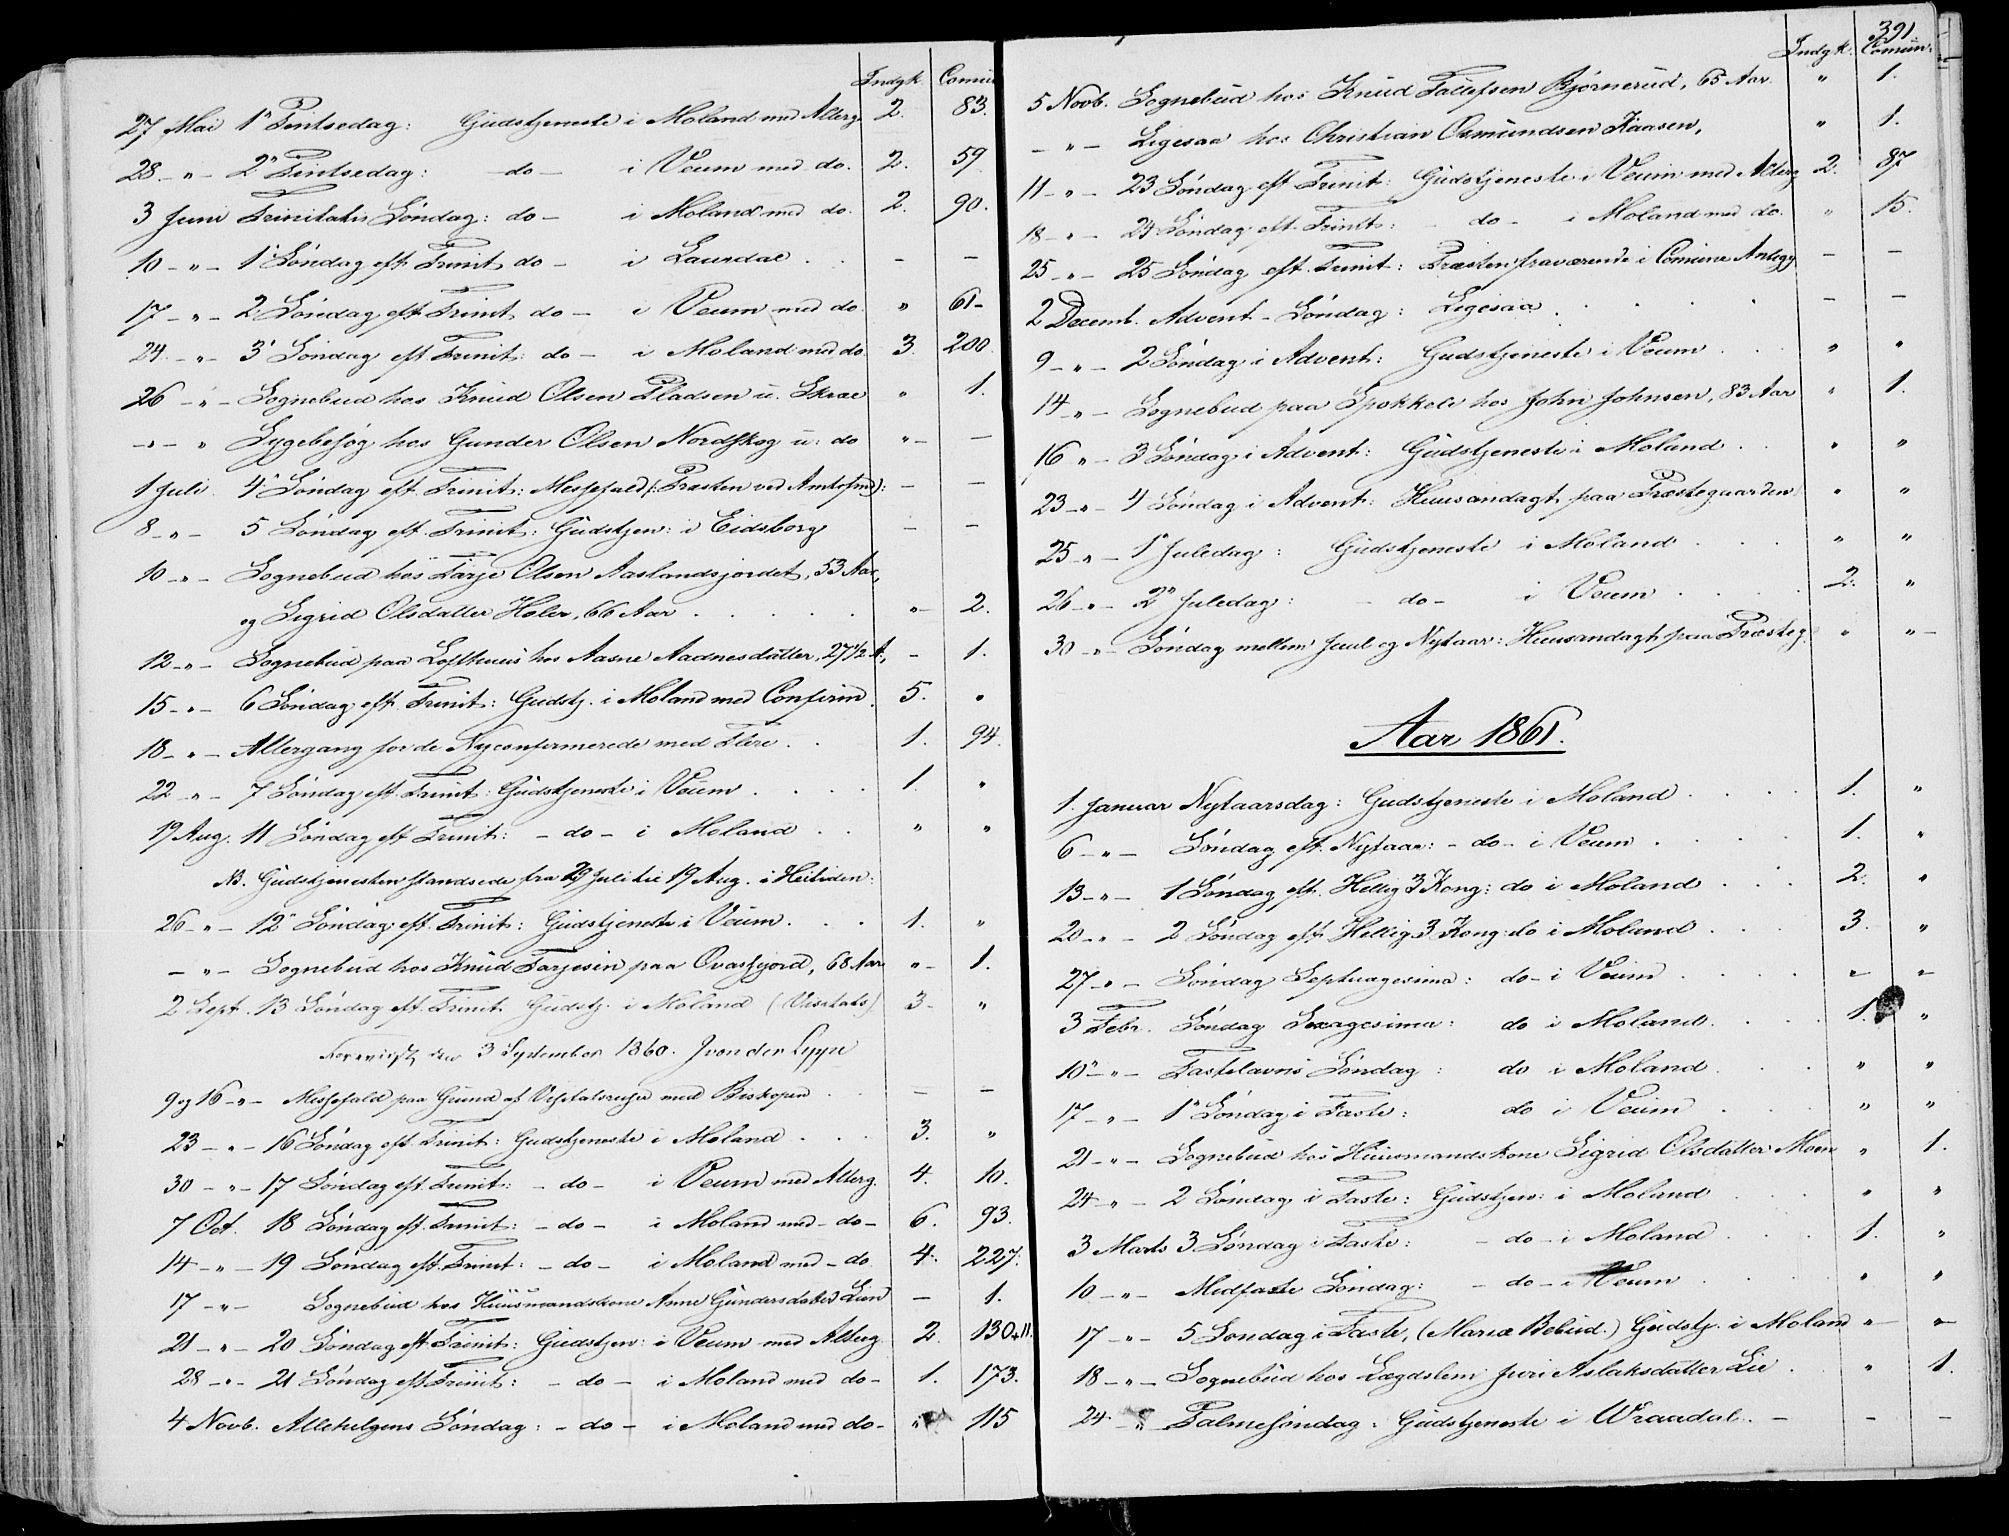 Indgk. Comun.
27 Mai 1ste Pintsedag: Gudstjeneste i Moland med Alterg. 2. 83.
28 - " - 2den Pintsedag: - do - i Veum med do. 2. 59
3 Juni Trinitatis Søndag: do - i Moland med do. 2. 90.
10 - " - 1ste Søndag eft Trinit. do - i Laurdal . . - -
17 - " - 2 Søndag eft Trinit. do - i Veum med do " 61 -
24 - " - 3die Søndag eft Trinit: do - i Moland med do 3. 200.
26 - " - Sognebud hos Knud Olsen Pladsen u. Skrae " 1.
- " - " Sygebesøg hos Gunder Olsen Nordskog u: do " - -
1 Juli 4de Søndag eft. Trinit: Messefald (: Præsten ved Amtsfmd): - -
8 - " - 5 Søndag eft. Trinit: Gudstjen: i Eidsborg - -
10 - " - Sognebud hos Tarje Olsen Aaslandsjordet, 53 Aar,
og Sigrid Olsdatter Holer, 66 Aar . . . . " - 2.
12 - " - Sognebud paa Lofthuus hos Aasne Aadnesdatter, 27 1/2 A, - 1.
15 - " - 6 Søndag eft Trinit: Gudstj. i Moland med Confirm. 5. "
18 - " - Altergang for de Nyconfirmerede med Flere . . 1. 94.
22 - " - 7 Søndag eft. Trinit: Gudstjeneste i Veum . . . . 1. "
19 Aug. 11 Søndag eft Trinit: - do - i Moland . . " "
NB. Gudstjenesten standsede fra 29 Juli til 19 Aug. i Heitiden:
26 - " - 12te Søndag eft. Trinit: Gudstjeneste i Veum . . . 1. "
- " - Sognebud hos Knud Tarjesen paa Ovasfjord, 68 Aar " - 1.
2 Sept. 13 Søndag eft. Trinit Gudstj. i Moland (Visitats) 3 - "
3 September 1860. J von der Lippe
9 og 16 - " - Messefald paa Grund af Visitatsreiser med Biskopen . . - -
23 - " - 16 Søndag eft. Trinit: Gudstjeneste i Moland . . . 3. "
30 - " - 17 Søndag eft. Trinit: - do - i Veum med Alterg. 4. 10.
7 Oct. 18 Søndag eft. Trinit: - do - i Moland med - do - 6. 93.
14 - " - 19 Søndag eft. Trinit: - do - i Moland med - do 4. 227.
17 - " - Sognebud hos Huusmandskone Anne Gundersdatter Lien - 1.
21 - " - 20 Søndag eft Trinit: Gudstjen: i Veum med Alterg 2. 130
28 - " - 21 Søndag eft Trinit: - do - i Moland med do - 1. 173.
4 Novb. Allehelgens Søndag: - do - i Moland med do - " 115
391
Indgk. Comun:
5 Novb. Sognebud hos Knud Tallefsen Bjørnerud, 65 Aar. " 1.
- " - Ligesaa hos Christian Osmundsen Kaasen, " 1.
11 - " - 23 Søndag eft Trinit: Gudstjeneste i Veum med Alterg 2. 87
18 - " - 24 Søndag eft. Trinit: - do - i Moland med do. " 15.
25 - " - 25 Søndag eft. Trinit: Præsten fraværende i Comune Anligg - -
2 Decemb. Advent - Søndag: Ligesaa . . . . - -
9 - " - 2 Søndag i Advent: Gudstjeneste i Veum . . . " "
14 - " - Sognebud paa Spokkeli hos John Johnsen, 83 Aar " 1.
16 " - 3 Søndag i Advent: Gudstjeneste i Moland . . " "
23 - " - 4 Søndag i Advent: Huusandagt paa Præstegaarden " "
25 " - 1ste Juledag: Gudstjeneste i Moland . . . " "
26 - " - 2den Juledag: - do - i Veum . . . . 2. "
30 - " - Søndag mellem Juul og Nytaar: Huusandagt paa Præsteg. " " -
Aar 1861.
1. Januar Nytaarsdag: Gudstjeneste i Moland . . . . 1. "
6 - " - Søndag eft. Nytaar: - do - i Veum . . . . 1. "
13 - " - 1 Søndag eft. Hellig 3 Kong: do i Moland . . . 2. "
20 - " - 2 Søndag eft Hellig 3 Kong: do i Moland . . . 3. "
27 - " - Søndag Septuagesima: do - i Veum . . . . " "
3 Febr. Søndag Sexagesima: do i Moland . . . . 1. "
10 - " - Fastelavns Søndag: do i Moland . . . " "
17 - " - 1ste Søndag i Faste: do i Veum . . . " "
21 - " - Sognebud hos Huusmandskone Sigrid Olsdatter Moen " 1.
24 - " - 2 Søndag i Faste: Gudstjen: i Moland . . . " "
3 Marts 3 Søndag i Faste: - do - i Moland . . . 1. "
10 - " - Midfaste Søndag: - do - i Veum . . . . " "
17 - " - 5 Søndag i Faste, (Mariæ Bebud.) Gudstj. i Moland " - " -
18 - " - Sognebud hos Lægdslem Juri Aslaksdatter Lie . " 1.
24 - " - Palmesøndag: Gudstjeneste i Wraadal . - - -